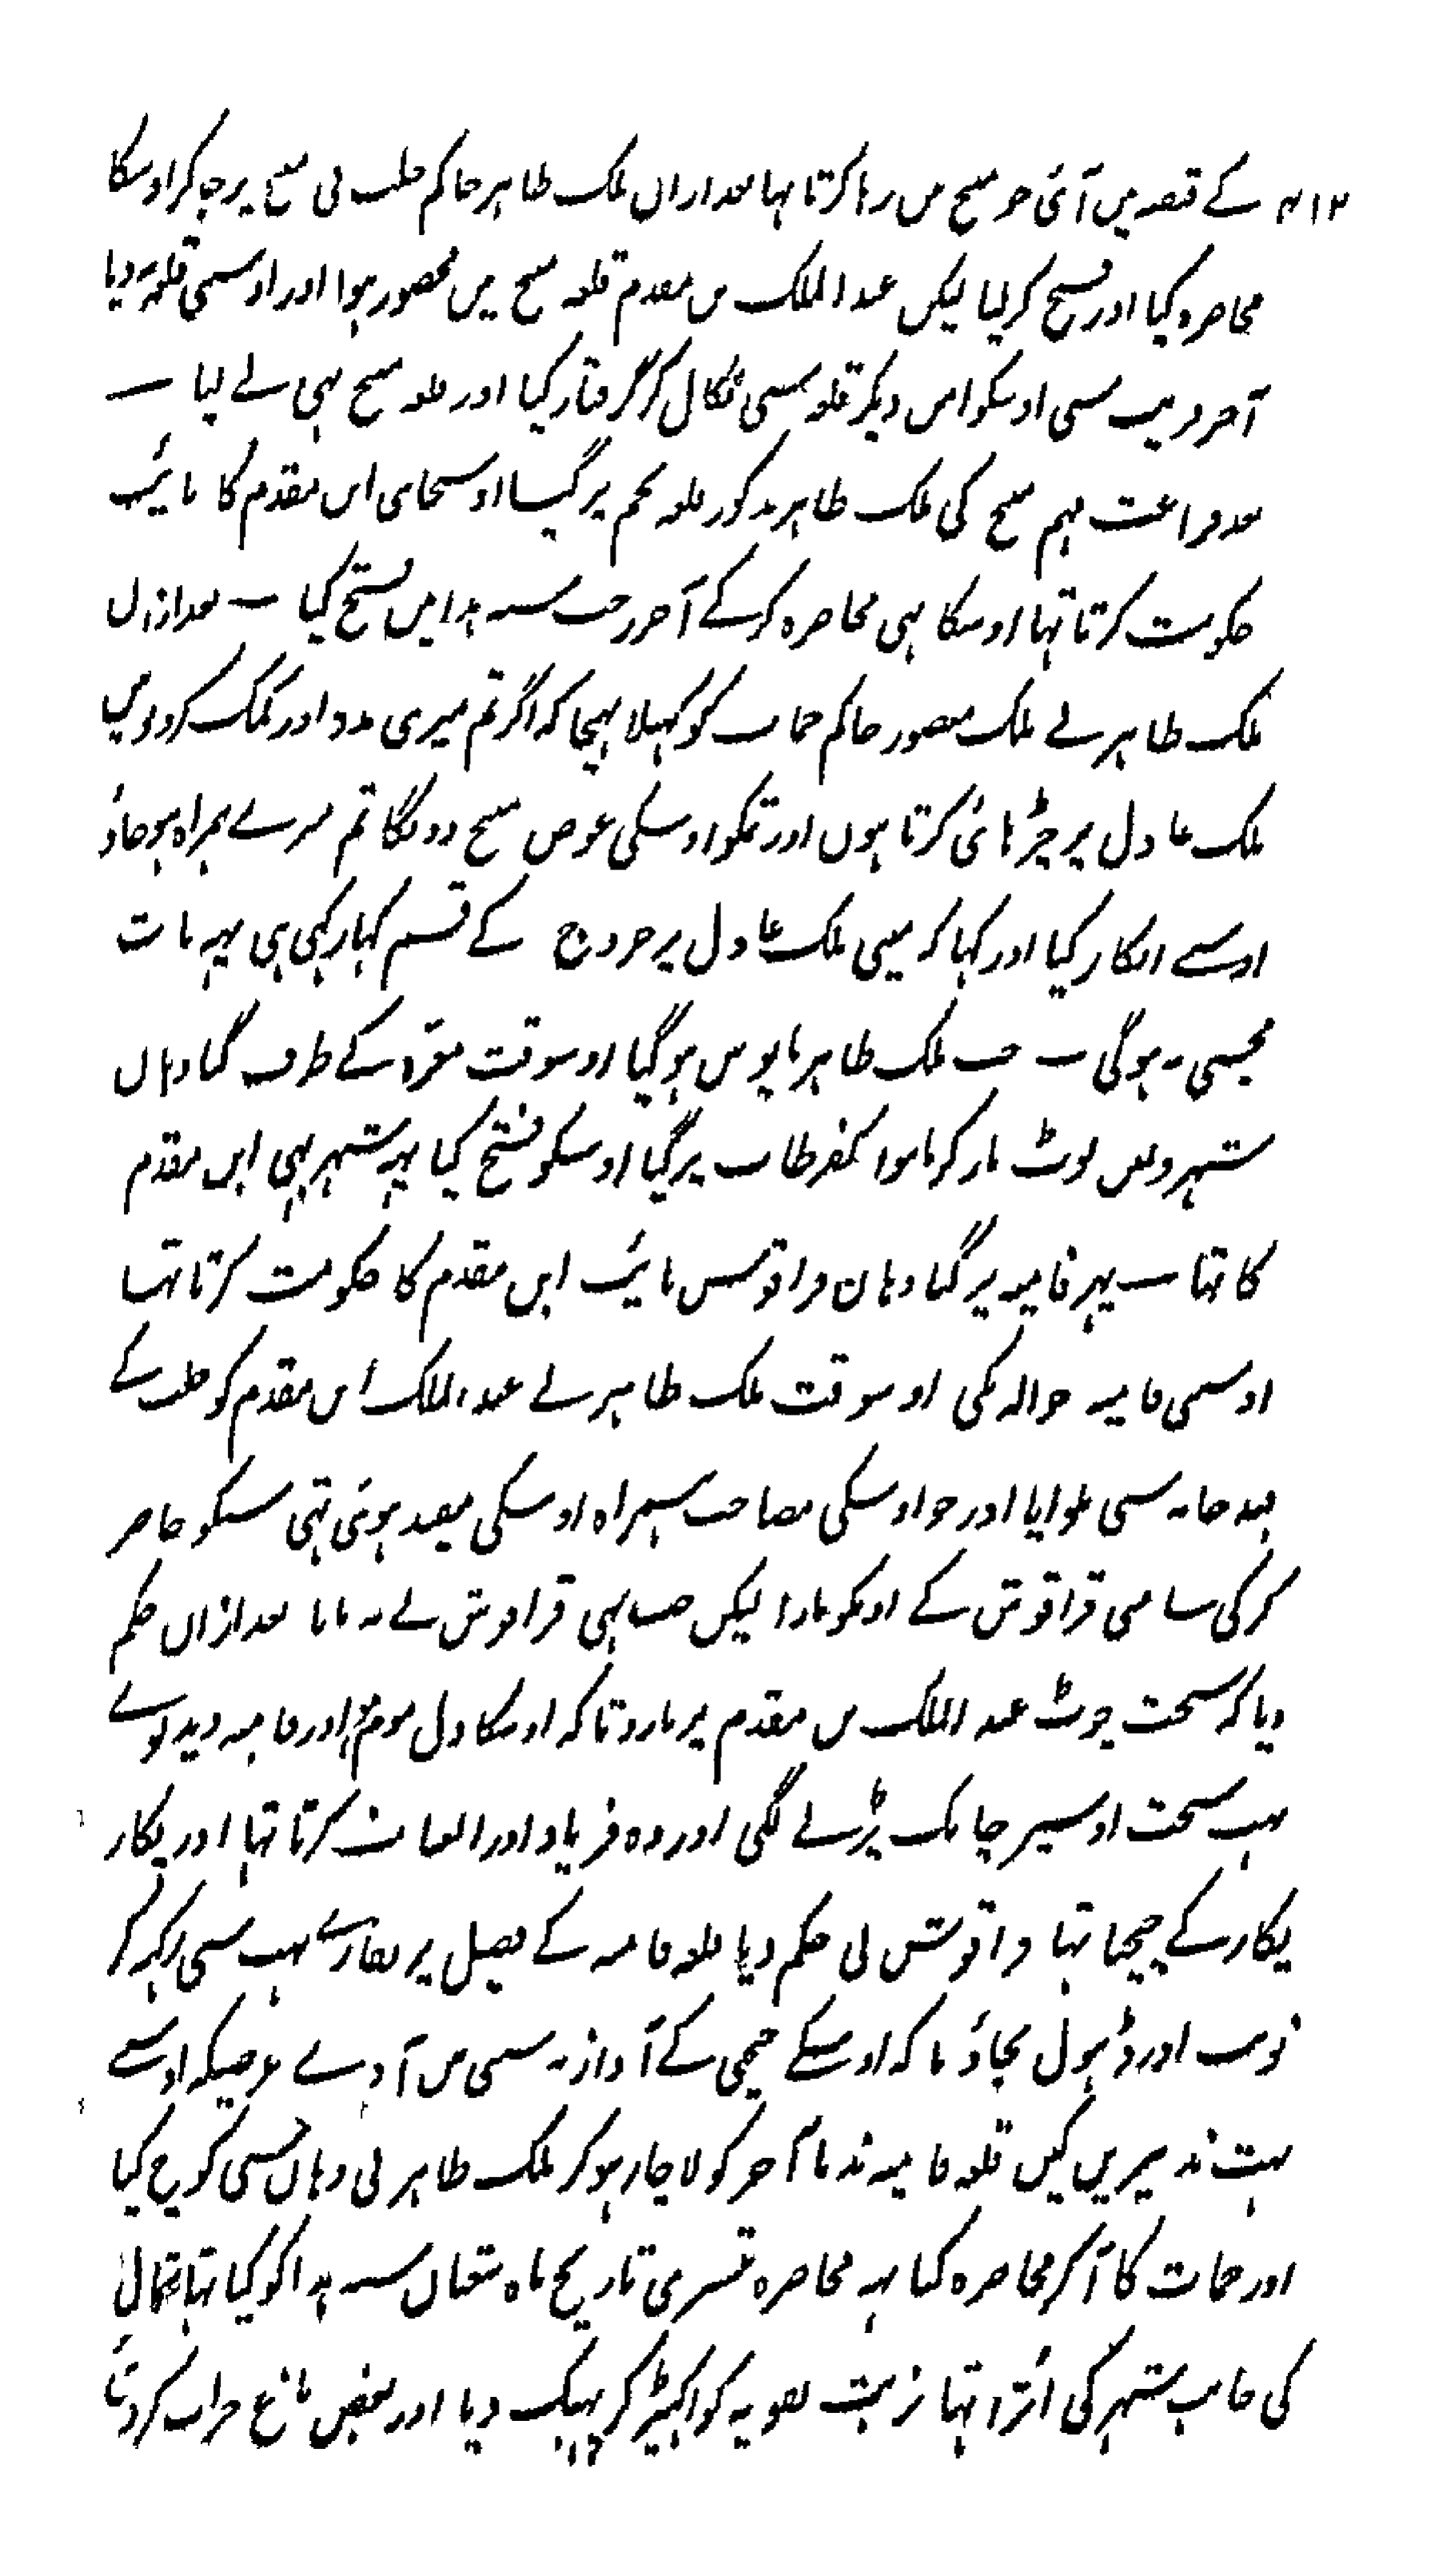 ۴۱۲ کے قصہ میں آئی جو منبج میں رہا کرتا تہا بعد ازاں ملک ظاہر حاکم حلب نی منبج پر چہ کر اوسکا
محاصرہ کیا اور فتح کر لیا لیکن عبد الملک بن مقدم قلعہ منبج میں محصور ہوا اور اوسمی قلعہ نہ دیا
آخر فریب سی اوسکو امن دیکر قلعہ سی نکال کر گرفتار کیا اور قلعہ منبج بہی لے لیا ۔
بعد فراغت مہم منبج کی ملک ظاہر مذکور قلعہ نجم پر گیا اوسجای ابن مقدم کا نائب
حکومت کرتا تہا اوسکا بہی محاصرہ کر کے آخر رجب سنہ ہذا میں فتح کیا ۔ بعد ازاں
ملک ظاہر نے ملک منصور حاکم حمات کو کہلا بہیجا کہ اگر تم میری مدد اور کمک کرو تو میں
ملک عادل پر چڑہائی کرتا ہوں اور تمکو اوسکی عوض منبج دونگا تم میرے ہمراہ ہو جاؤ
اوسنے انکار کیا اور کہا کہ مینی ملک عادل پر خروج کے قسم کہا رکہی ہی یہہ بات
مجہسی نہ ہوگی ۔ جب ملک ظاہر مایوس ہو گیا اوسوقت معرّہ کے طرف گیا وہاں
شہروں میں لوٹ مار کرتا ہوا کفرطاب پر گیا اوسکو فتح کیا یہہ شہر بہی ابن مقدم
کا تہا ۔ پہر فامیہ پر گیا وہان قراقوش نائب ابن مقدم کا حکومت کرتا تہا
اوسمی فامیہ حوالہ نکی اوسوقت ملک ظاہر نے عبد الملک ابن مقدم کو حلب کے
بندیخانہ سی بلوایا اور جو اوسکی مصاحب ہمراہ اوسکی مقید ہوئی تہی سبکو حاضر
کر کی سامنی قراقوش کے اونکو مارا لیکن جب بہی قراقوش نے نہ مانا بعد ازاں حکم
دیا کہ سخت چوٹ عبد الملک بن مقدم پر مارو تاکہ اوسکا دل موم ہو اور فامیہ دیدیوے
بہت سخت اوسپر چابک پڑنے لگی اور وہ فریاد اور الغیاث کرتا تہا اور پکار
پکار کے چیختا تہا قراقوش نی حکم دیا قلعہ فامیہ کے فصیل پر نقارے بہت سی رکہہ کر
نوبت اور ڈہول بجاؤ تاکہ اوسکے چیخنی کے آواز نہ سنی میں آوے غرضیکہ اوسنے
بہت تدبیریں کیں قلعہ فامیہ ندیا آخر کو لاچار ہو کر ملک ظاہر نی وہاں سی کوچ کیا
اور حمات کا آ کر محاصرہ کیا یہہ محاصرہ تیسری تاریخ ماہ شعبان سنہ ہذا کو کیا تہا شمال
کی جانب شہر کی اُترا تہا تربت تقویہ کو اکہیڑ کر پہینک دیا اور بعض باغ خراب کر دئے